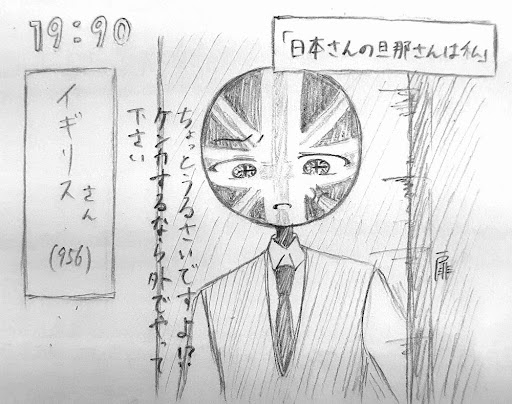 19:90
「日本さんの旦那さんは私」
イギリスさん
(956)
ちょっとうるさいですよ!?
ケンカするなら外でやって
下さい
扉